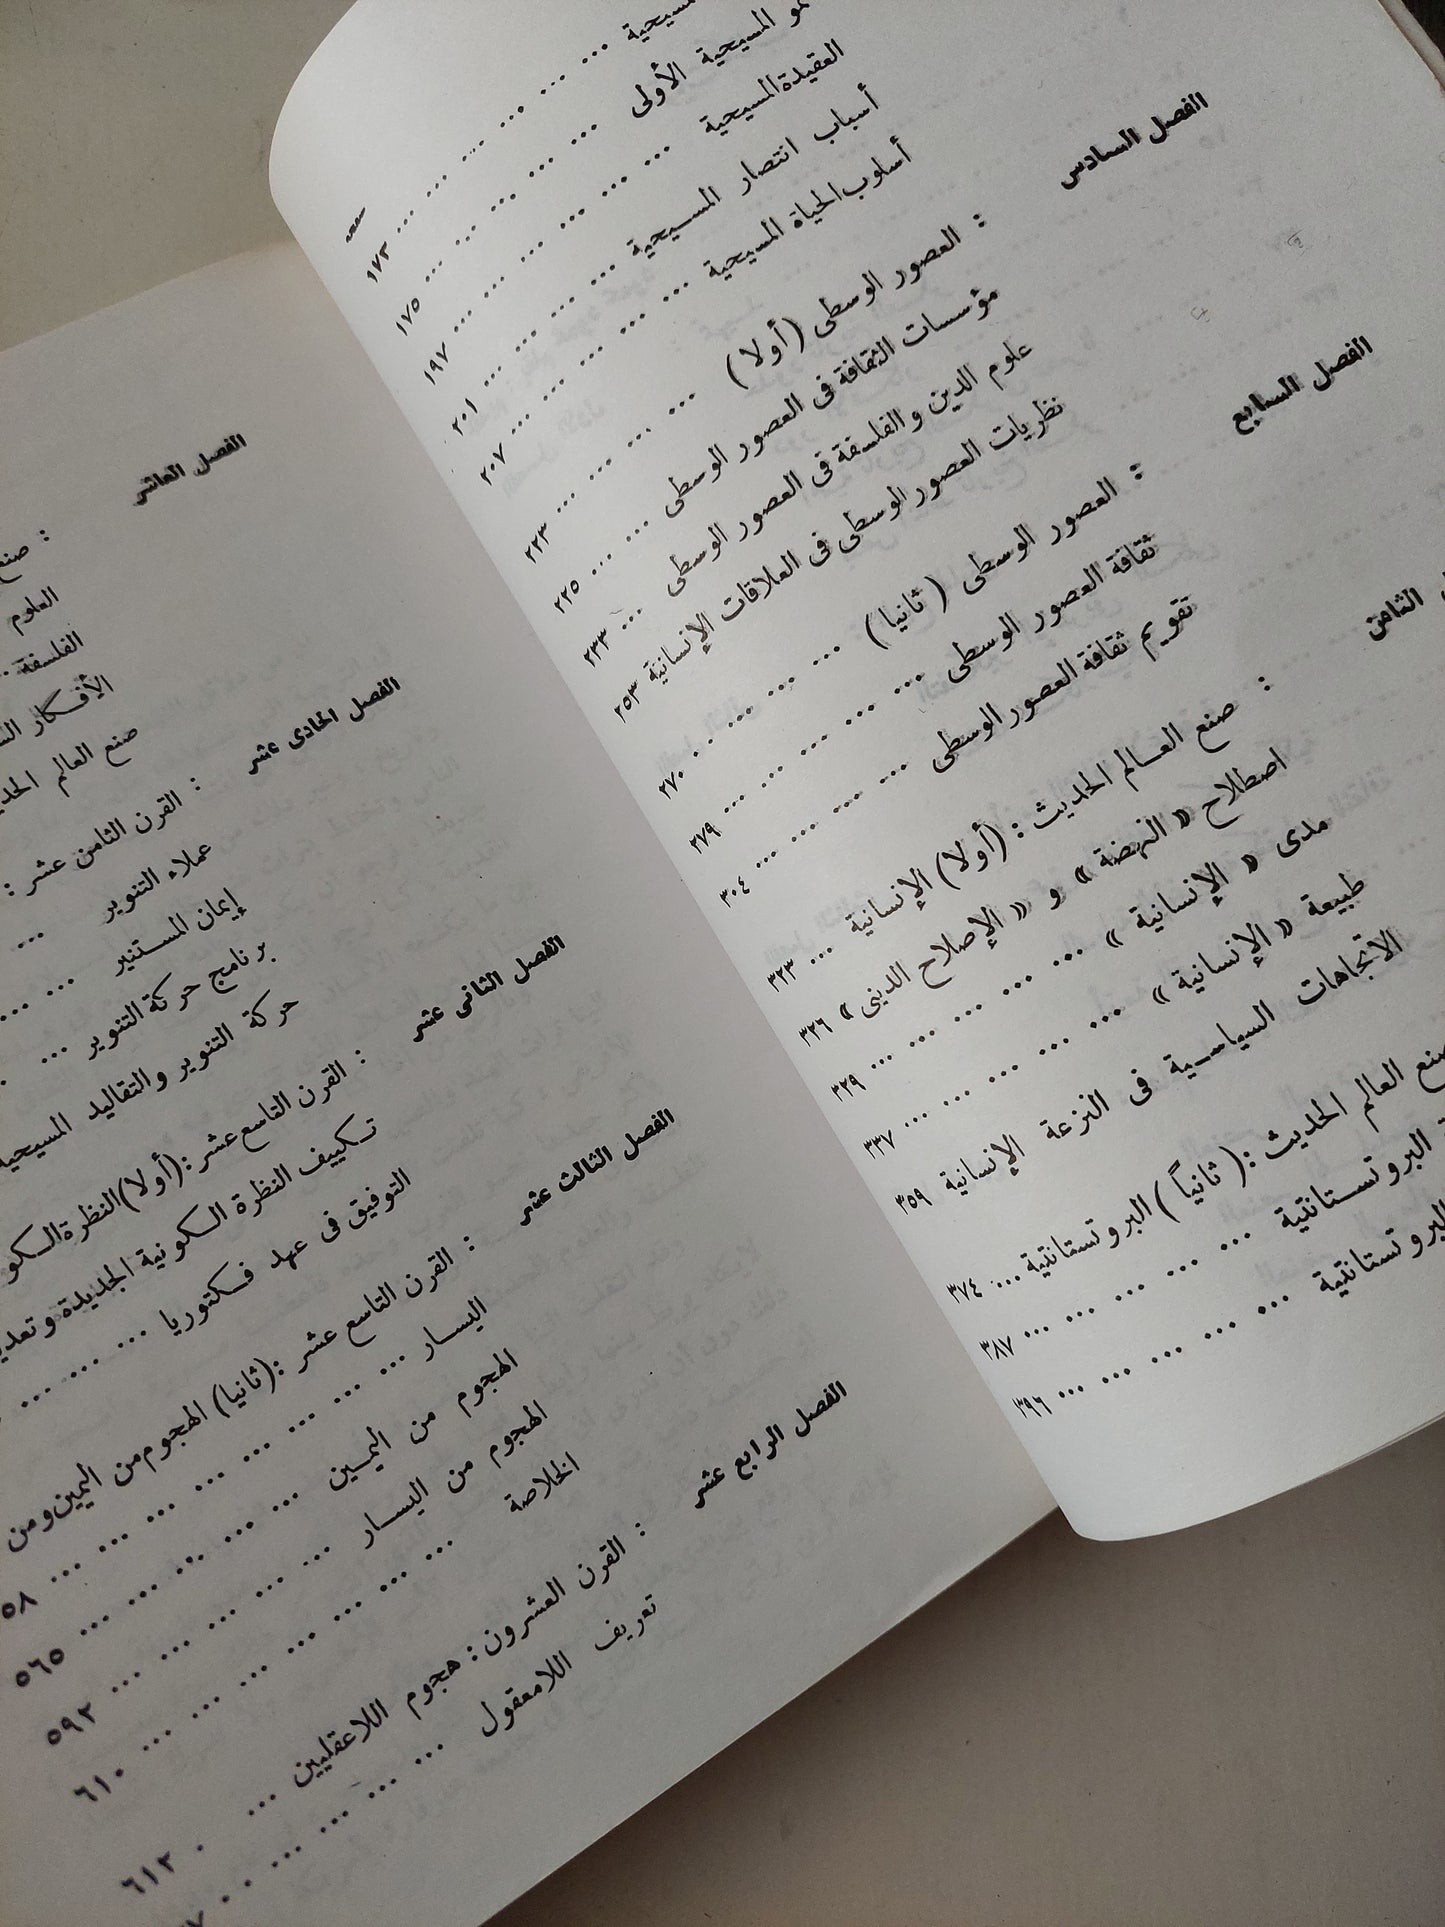 المسيحية ... ... ... ... ... ١٧٣
صفحة
نمو المسيحية الأولى ... ... ... ... ... ١٧٥
العقيدة المسيحية ... ... ... ... ... ... ١٩٧
أسباب انتصار المسيحية ... ... ... ... ٢٠١
أسلوب الحياة المسيحية ... ... ... ... ... ٢٠٧
الفصل السادس : العصور الوسطى (أولا) ... ... ... ... ٢٢٣
مؤسسات الثقافة فى العصور الوسطى ... ... ٢٢٥
علوم الدين والفلسفة فى العصور الوسطى ... ٢٣٣
نظريات العصور الوسطى فى العلاقات الإنسانية ٢٥٣
الفصل السابع : العصور الوسطى (ثانيا) ... ... ... ... ٢٧٠
ثقافة العصور الوسطى ... ... ... ... ... ٢٧٩
تقويم ثقافة العصور الوسطى ... ... ... ... ٣٠٤
الثامن : صنع العالم الحديث : (أولا) الإنسانية ... ٣٢٣
اصطلاح « النهضة » و « الإصلاح الدينى » ٣٢٦
مدى « الإنسانية » ... ... ... ... ... ٣٢٩
طبيعة « الإنسانية » ... ... ... ... ... ٣٣٧
الاتجاهات السياسية فى النزعة الإنسانية ٣٥٩
صنع العالم الحديث : (ثانياً) البروتستانتية ... ٣٧٤
البروتستانتية ... ... ... ... ... ٣٨٧
البروتستانتية ... ... ... ... ... ٣٩٦
الفصل العاشر : صنع
العلوم
الفلسفة ...
الأفكار
صنع العالم
الفصل الحادى عشر : القرن الثامن عشر :
عملاء التنوير ...
إيمان المستنير ... ...
برنامج حركة التنوير ...
حركة التنوير والتقاليد المسيحية
الفصل الثانى عشر : القرن التاسع عشر : (أولا) النظرة
تكييف النظرة الكونية الجديدة
التوفيق فى عهد فكتوريا ... ... ...
الفصل الثالث عشر : القرن التاسع عشر : (ثانيا) الهجوم من اليمين ومن
اليسار ... ... ... ... ... ... ... ٥٨
الهجوم من اليمين ... ... ... ... ... ٥٦٥
الهجوم من اليسار ... ... ... ... ... ٥٩٢
الخلاصة ... ... ... ... ... ... ... ٦١٠
الفصل الرابع عشر : القرن العشرون : هجوم اللاعقليين ... . ٦١٢
تعريف اللامعقول ... ... ... ... . . ٧